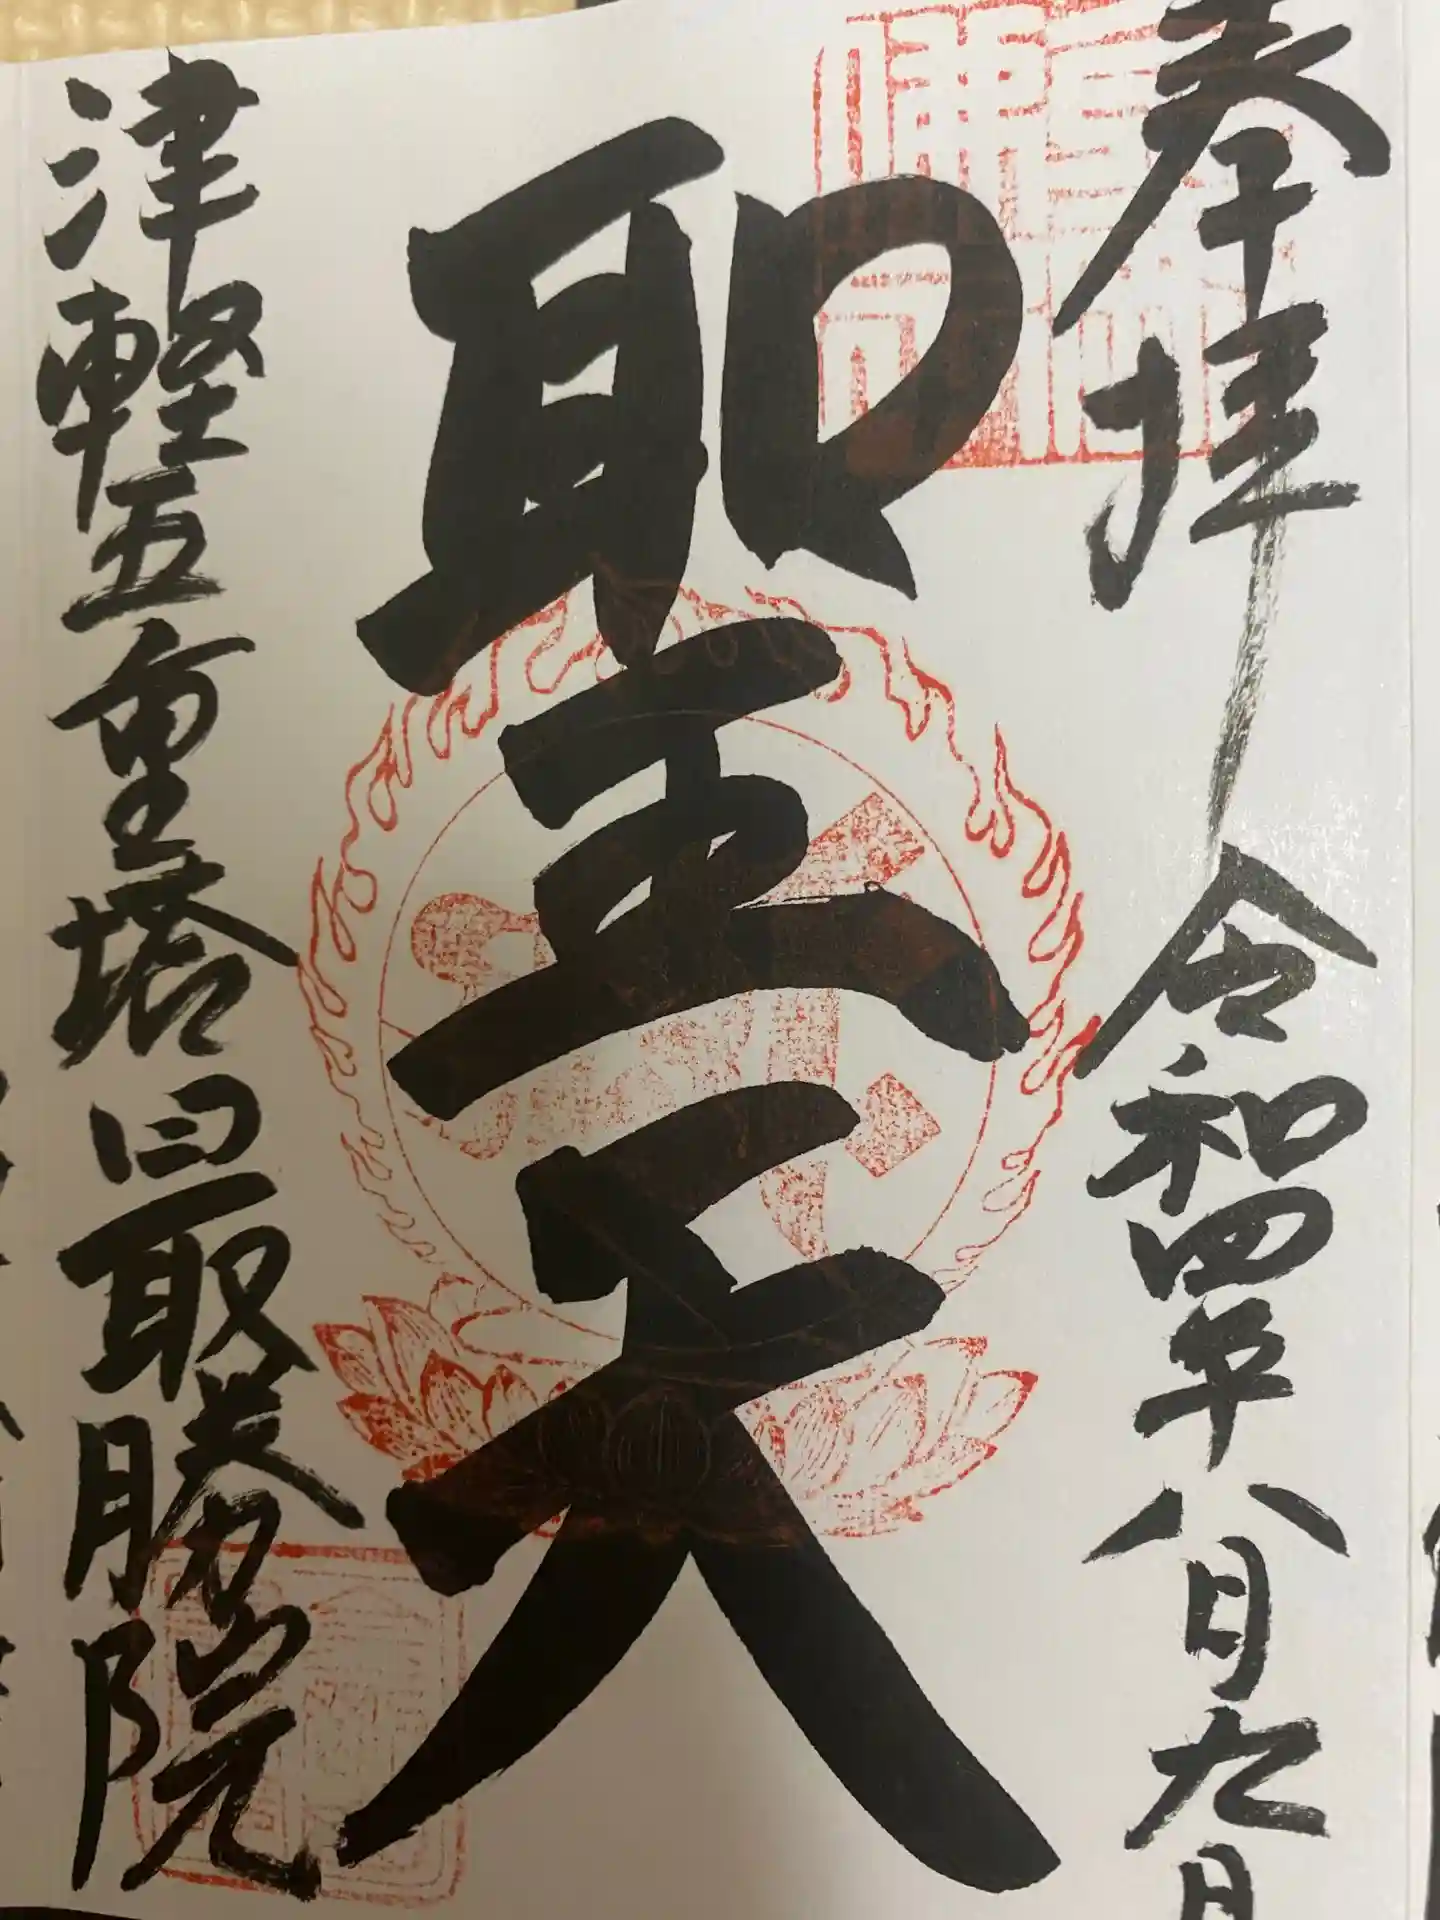 奉拝 令和四年八月九日
聖天
津軽五重塔 最勝院